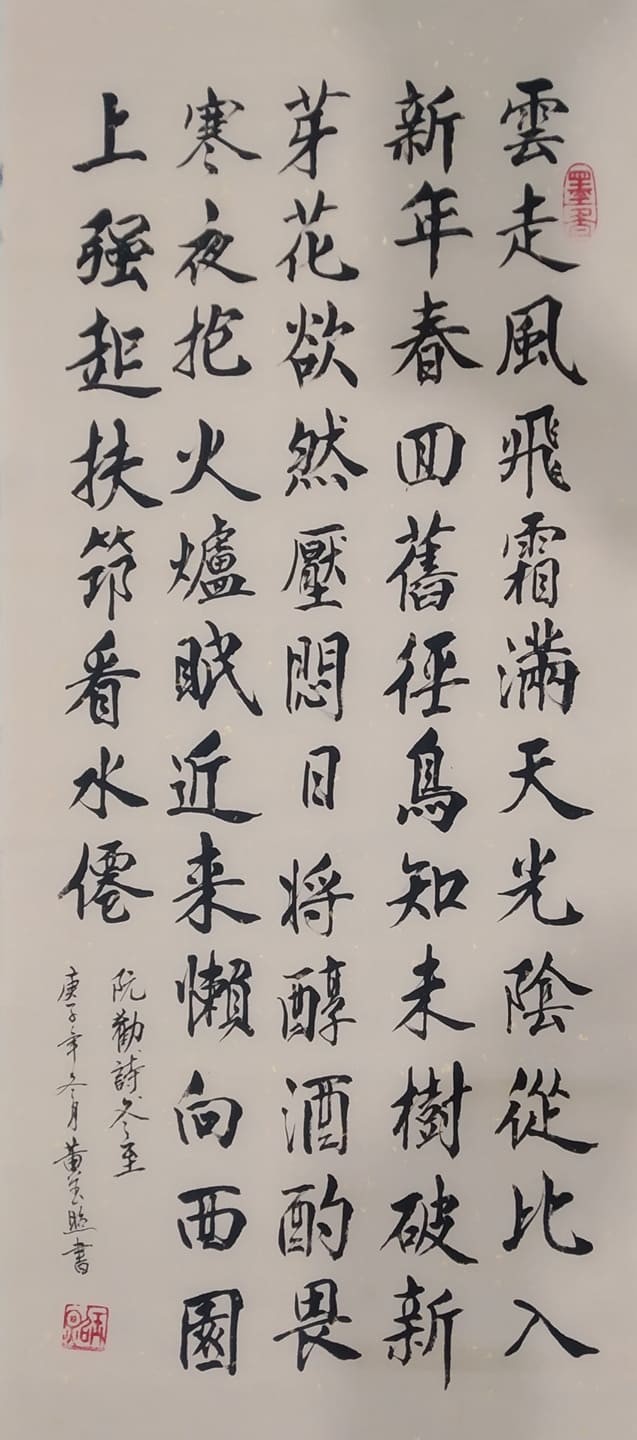 雲走風飛霜滿天光陰從比入
新年春回舊徑鳥知未樹破新
芽花欲然壓悶日将醇酒酌畏
寒夜抱火爐眠近来懶向西園
上强起扶筇看水僊
阮勸詩冬至
庚子年冬月黃玉照書
墨香